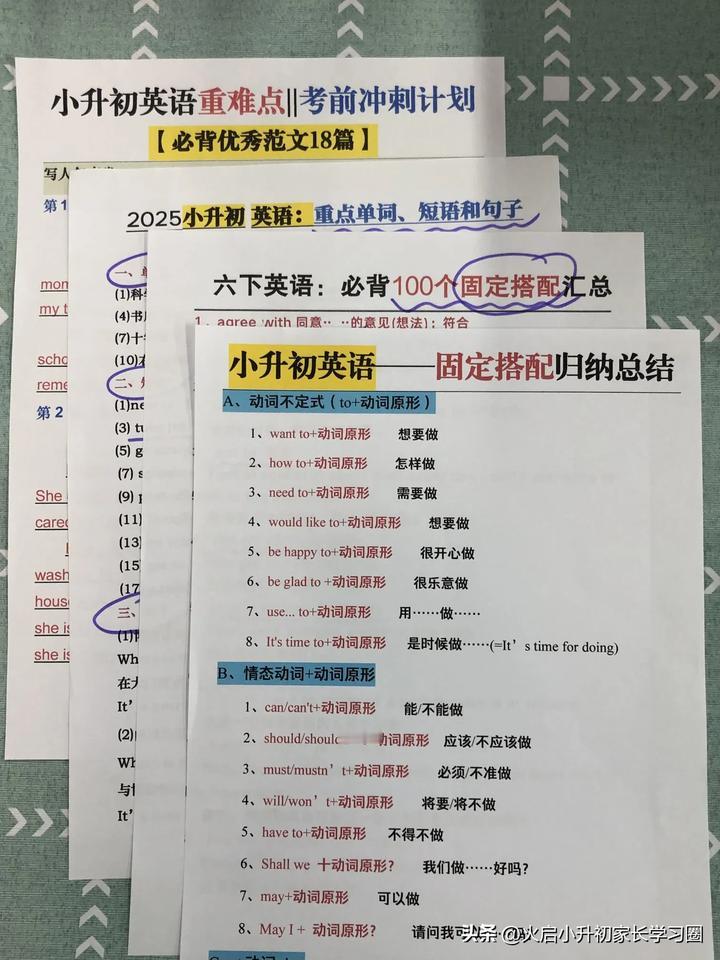 小升初英语重难点||考前冲刺计划
【必背优秀范文18篇】
写人
第1
mom
my t
scho
reme
第2
She
cared
wash
house
she is
she is
2025小升初英语：重点单词、短语和句子
一、单
(1)科学
(4)书
(7)十
(10)
二、短
(1)ne
(3) tu
(5) g
(7) s
(9) p
(11)
(13)
(15)
(17
三、
(1)
Wh
在
It'
(2)
Wh
与
It'
六下英语：必背100个固定搭配汇总
1、agree with 同意……的意见(想法)；符合
小升初英语——固定搭配归纳总结
A、动词不定式（to+动词原形）
1、want to+动词原形 想要做
2、how to+动词原形 怎样做
3、need to+动词原形 需要做
4、would like to+动词原形 想要做
5、be happy to+动词原形 很开心做
6、be glad to +动词原形 很乐意做
7、use... to+动词原形 用……做……
8、It's time to+动词原形 是时候做……(=It’s time for doing)
B、情态动词+动词原形
1、can/can't+动词原形 能/不能做
2、should/should 动词原形 应该/不应该做
3、must/mustn’t+动词原形 必须/不准做
4、will/won’t+动词原形 将要/将不做
5、have to+动词原形 不得不做
6、Shall we 十动词原形? 我们做……好吗?
7、may+动词原形 可以做
8、May I + 动词原形? 请问我可
头条 @火启小升初家长学习圈